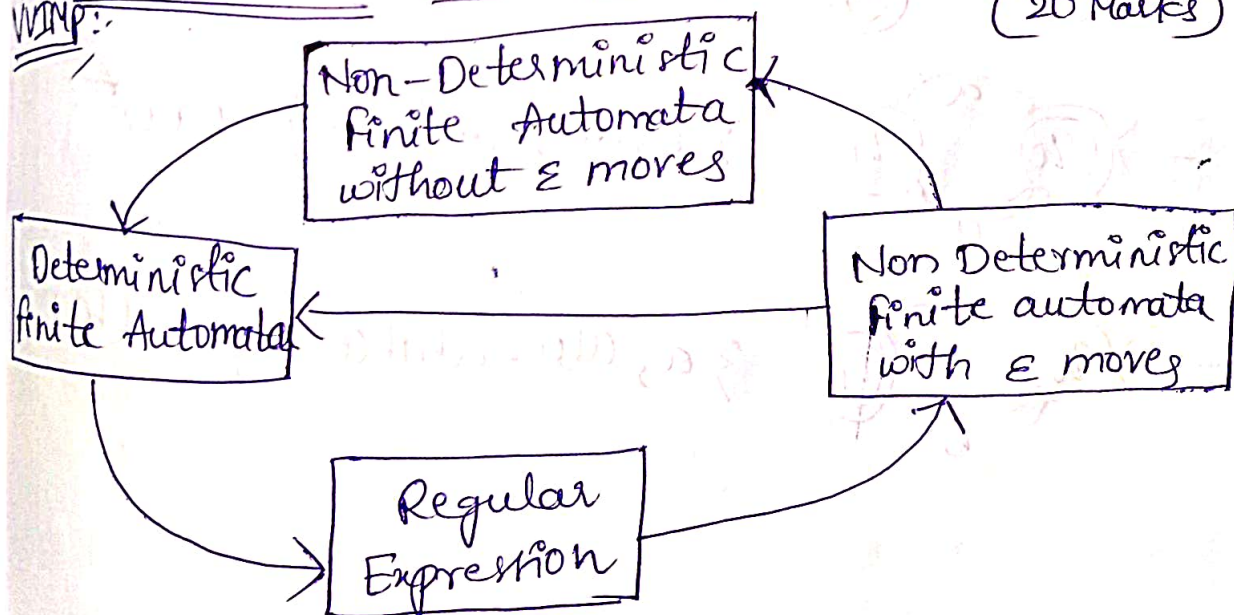 VVIMP:-
(20 Marks)
Non-Deterministic
finite Automata
without ε moves
Deterministic
finite Automata
Non Deterministic
finite automata
with ε moves
Regular
Expression